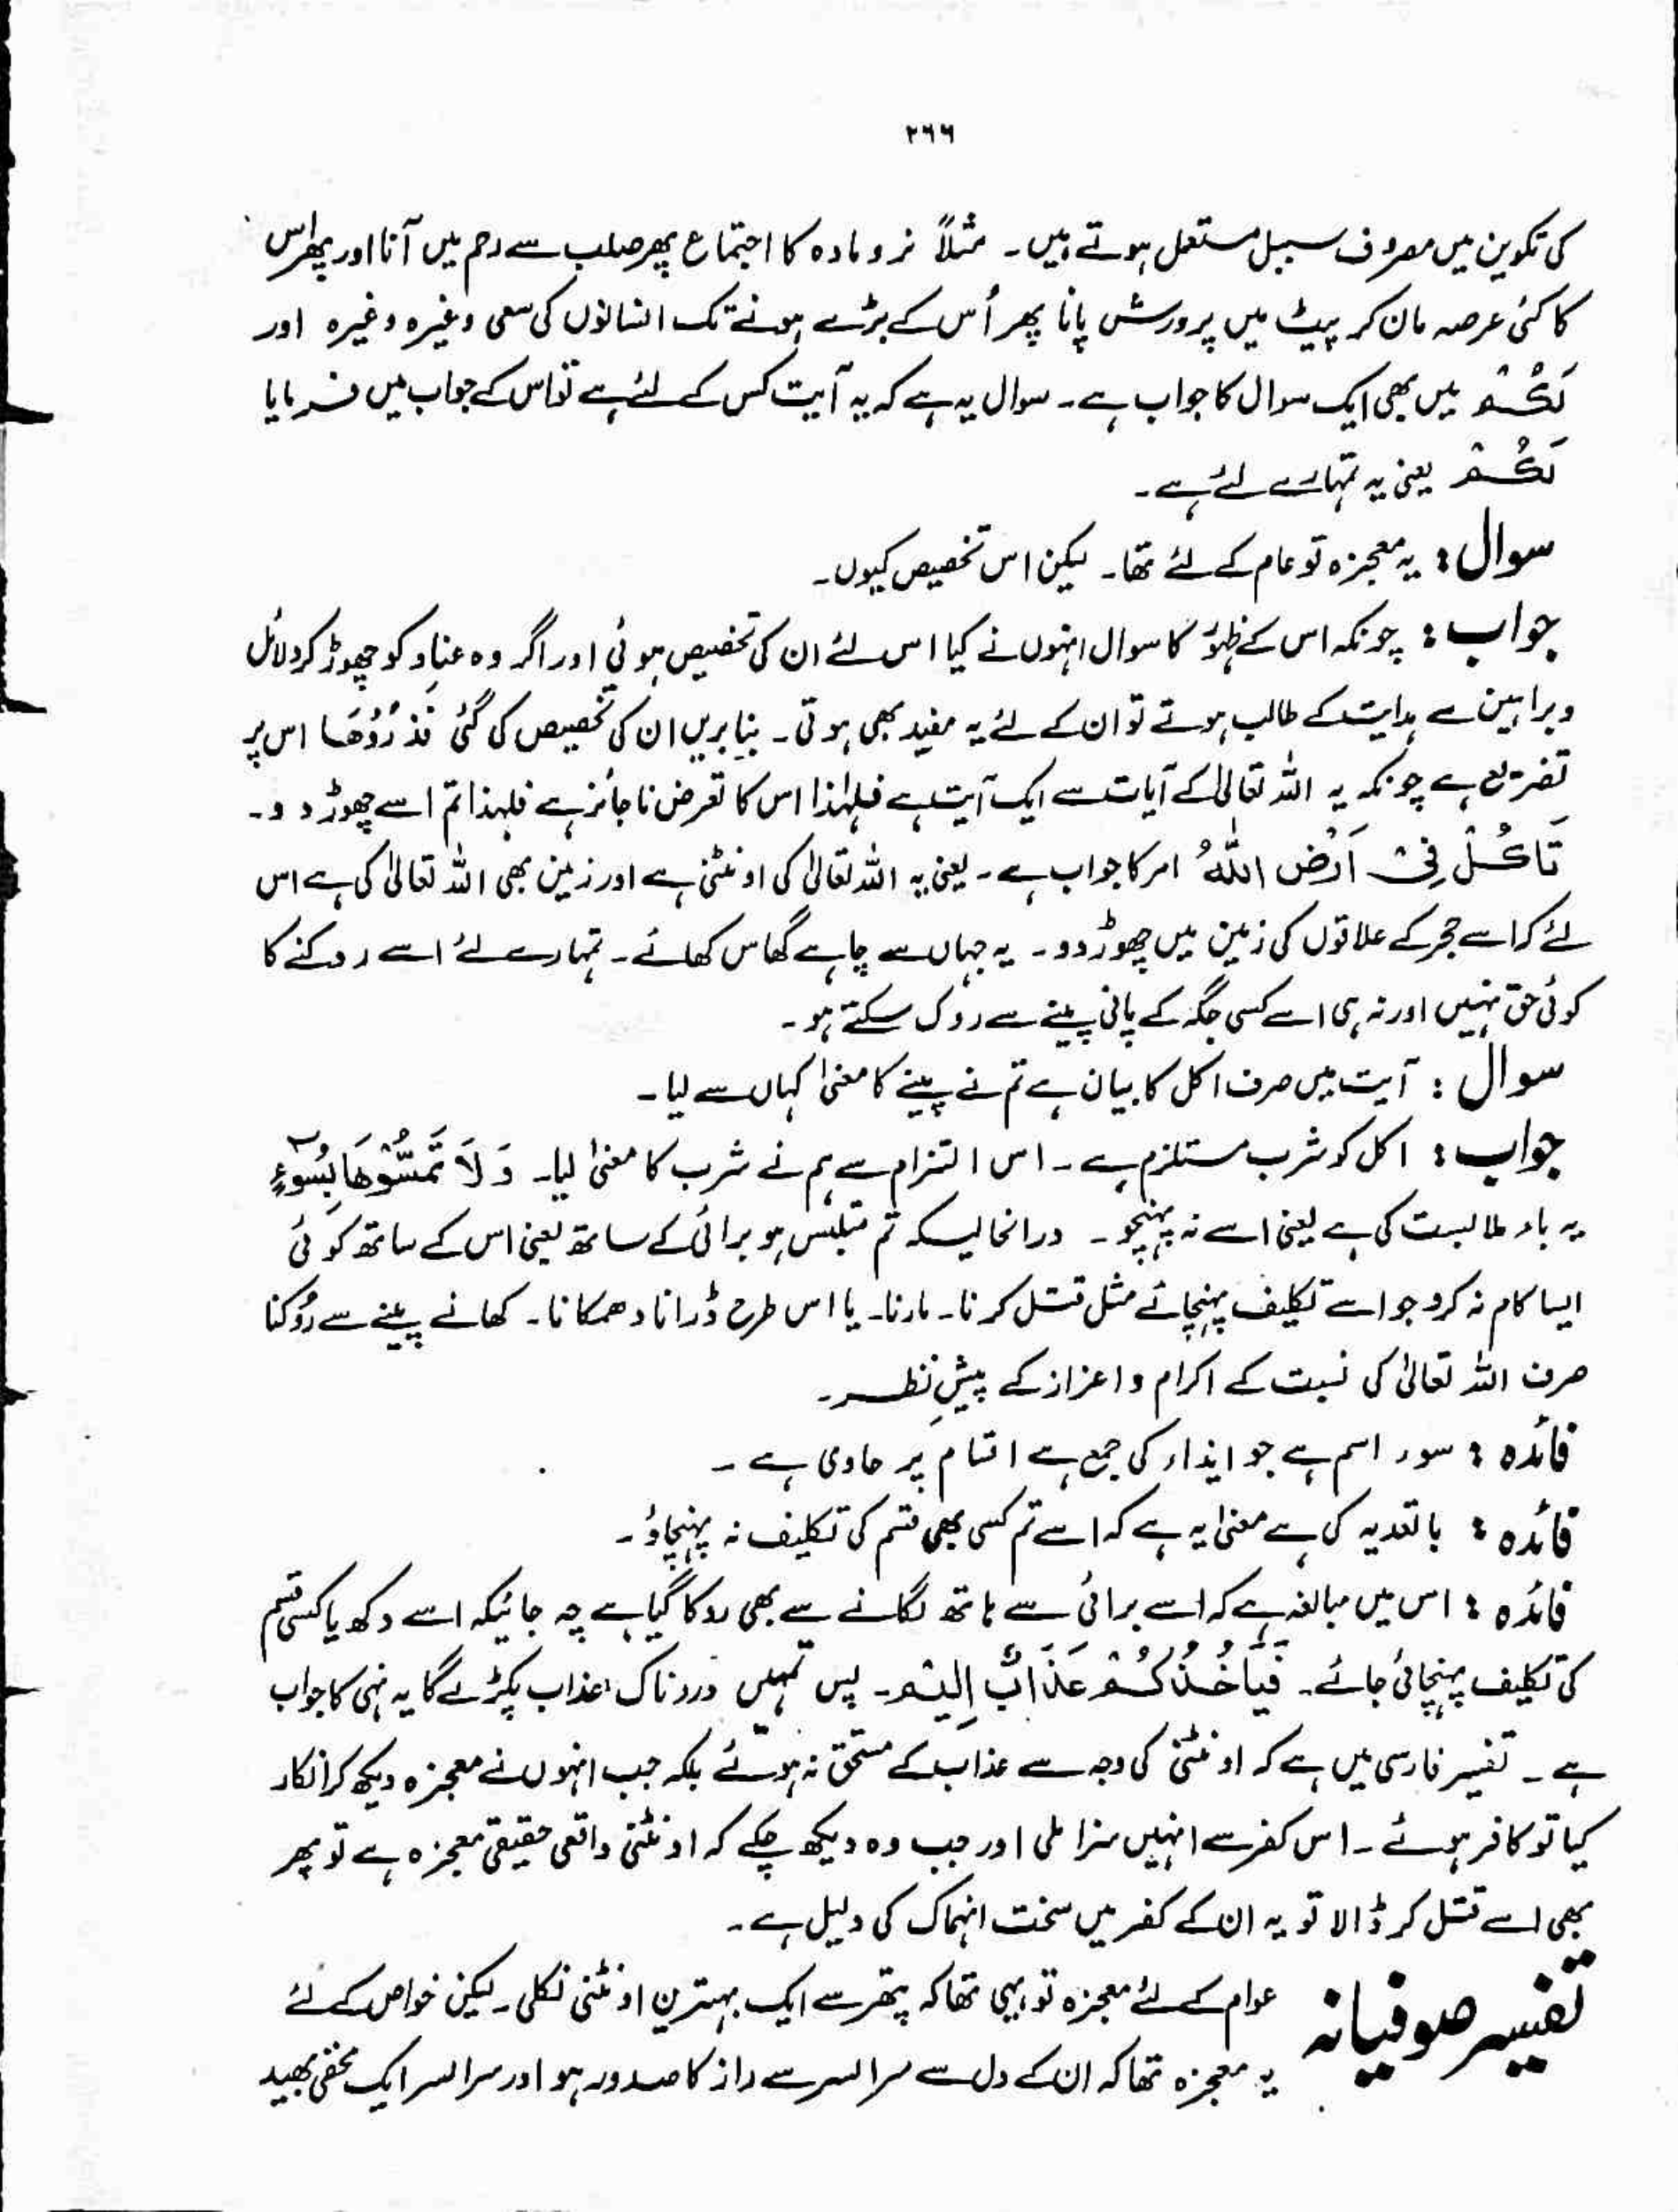 ۲۶۶
کی تکوین میں معروف سبیل مستعمل ہوتے ہیں۔ مثلاً نر و مادہ کا اجتماع پھر صلب سے رحم میں آنا اور پھر اس
کا کئی عرصہ ماں کر پیٹ میں پرورش پانا پھر اُس کے بڑے ہونے تک انسانوں کی سعی وغیرہ وغیرہ اور
لَکُمْ میں بھی ایک سوال کا جواب ہے۔ سوال یہ ہے کہ یہ آیت کس کے لئے ہے تو اس کے جواب میں فرمایا
لَکُمْ یعنی یہ تمہارے لئے ہے۔
سوال: یہ معجزہ تو عام کے لئے تھا۔ لیکن اس تخصیص کیوں۔
جواب: چونکہ اس کے ظہور کا سوال انہوں نے کیا اس لئے ان کی تخصیص ہوئی اور اگر وہ عناد کو چھوڑ کر دلائل
و براہین سے ہدایت کے طالب ہوتے تو ان کے لئے یہ مفید بھی ہوتی۔ بنابریں ان کی تخصیص کی گئی فَذَرُوْھَا اس پر
تفریع ہے چونکہ یہ اللہ تعالیٰ کے آیات سے ایک آیت ہے فلہٰذا اس کا تعرض ناجائز ہے فلہٰذا تم اسے چھوڑ دو۔
تَاکُلْ فِیْ اَرْضِ اللّٰہِ امر کا جواب ہے۔ یعنی یہ اللہ تعالیٰ کی اونٹنی ہے اور زمین بھی اللہ تعالیٰ کی ہے اس
لئے کہ اسے حجر کے علاقوں کی زمین میں چھوڑ دو۔ یہ جہاں سے چاہے گھاس کھائے۔ تمہارے لئے اسے روکنے کا
کوئی حق نہیں اور نہ ہی اسے کسی جگہ کے پانی پینے سے روک سکتے ہو۔
سوال: آیت میں صرف اکل کا بیان ہے تم نے پینے کا معنیٰ کہاں سے لیا۔
جواب: اکل کو شرب مستلزم ہے۔ اس التزام سے ہم نے شرب کا معنیٰ لیا۔ وَلَا تَمَسُّوْھَا بِسُوْٓءٍ
یہ باء ملابست کی ہے یعنی اسے نہ پہنچو۔ درانحالیکہ تم متلبس ہو برائی کے ساتھ یعنی اس کے ساتھ کوئی
ایسا کام نہ کرو جو اسے تکلیف پہنچائے مثل قتل کرنا۔ مارنا۔ یا اس طرح ڈرانا دھمکانا۔ کھانے پینے سے روکنا
صرف اللہ تعالیٰ کی نسبت کے اکرام و اعزاز کے پیشِ نظر۔
فائدہ: سوء اسم ہے جو ایذاء کی جمع ہے اقسام پر حاوی ہے۔
فائدہ: با تعدیہ کی ہے معنیٰ یہ ہے کہ اسے تم کسی بھی قسم کی تکلیف نہ پہنچاؤ۔
فائدہ: اس میں مبالغہ ہے کہ اسے برائی سے ہاتھ لگانے سے بھی روکا گیا ہے چہ جائیکہ اسے دکھ یا کسی قسم
کی تکلیف پہنچائی جائے۔ فَیَاْخُذَکُمْ عَذَابٌ اَلِیْمٌ۔ پس تمہیں دردناک عذاب پکڑے گا یہ نہی کا جواب
ہے۔ تفسیر فارسی میں ہے کہ اونٹنی کی وجہ سے عذاب کے مستحق نہ ہوئے بلکہ جب انہوں نے معجزہ دیکھ کر انکار
کیا تو کافر ہوئے۔ اس کفر سے انہیں سزا ملی اور جب وہ دیکھ چکے کہ اونٹنی واقعی حقیقی معجزہ ہے تو پھر
بھی اسے قتل کر ڈالا تو یہ ان کے کفر میں سخت انہماک کی دلیل ہے۔
تفسیر صوفیانہ عوام کے لئے معجزہ تو یہی تھا کہ پتھر سے ایک بہترین اونٹنی نکلی۔ لیکن خواص کے لئے
یہ معجزہ تھا کہ ان کے دل سے سر السر سے راز کا صدور ہو اور سر السر ایک مخفی بھید